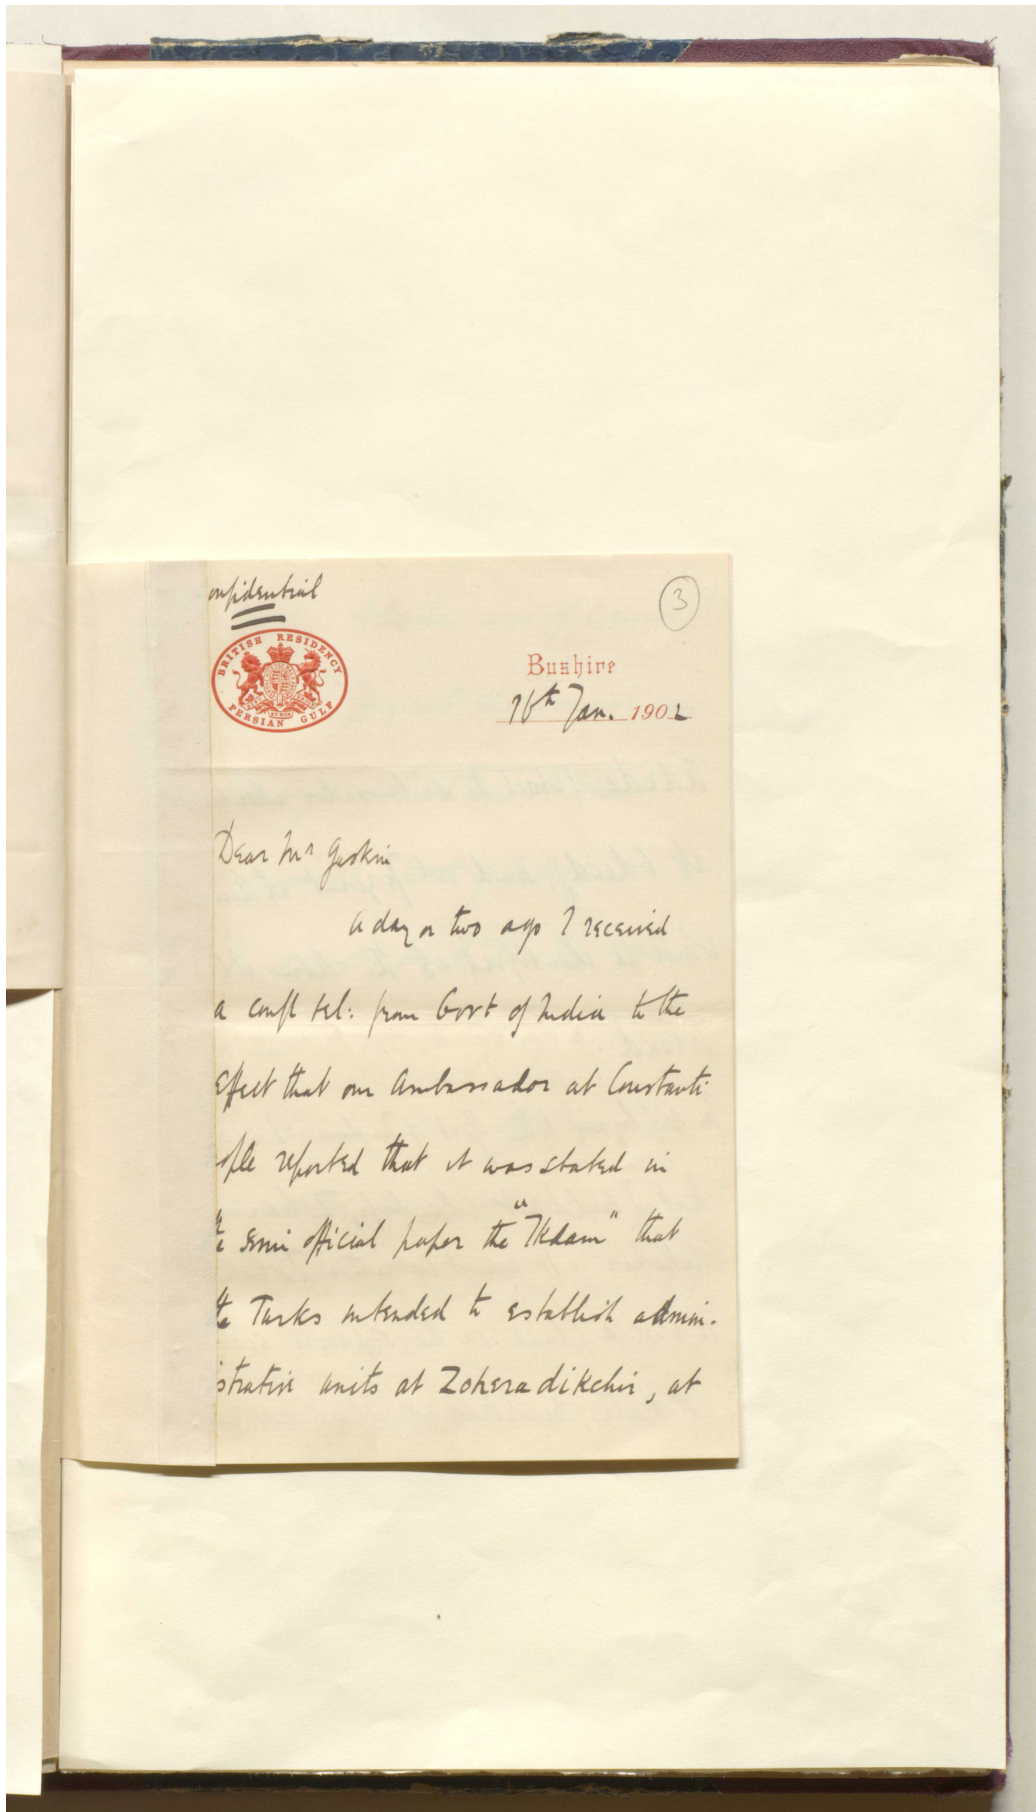 onfidential
3
BRITISH RESIDENCY
PERSIAN GULF
Bushire
16th Jan. 1902
Dear Mr Gaskin
A day or two ago I received
a confl tel: from Govt of India to the
effect that our Ambassador at Constanti
ople reported that it was stated in
semi official paper the "Ikdam" that
Turks intended to establish admin-
istrative units at Zokeradikchir, at